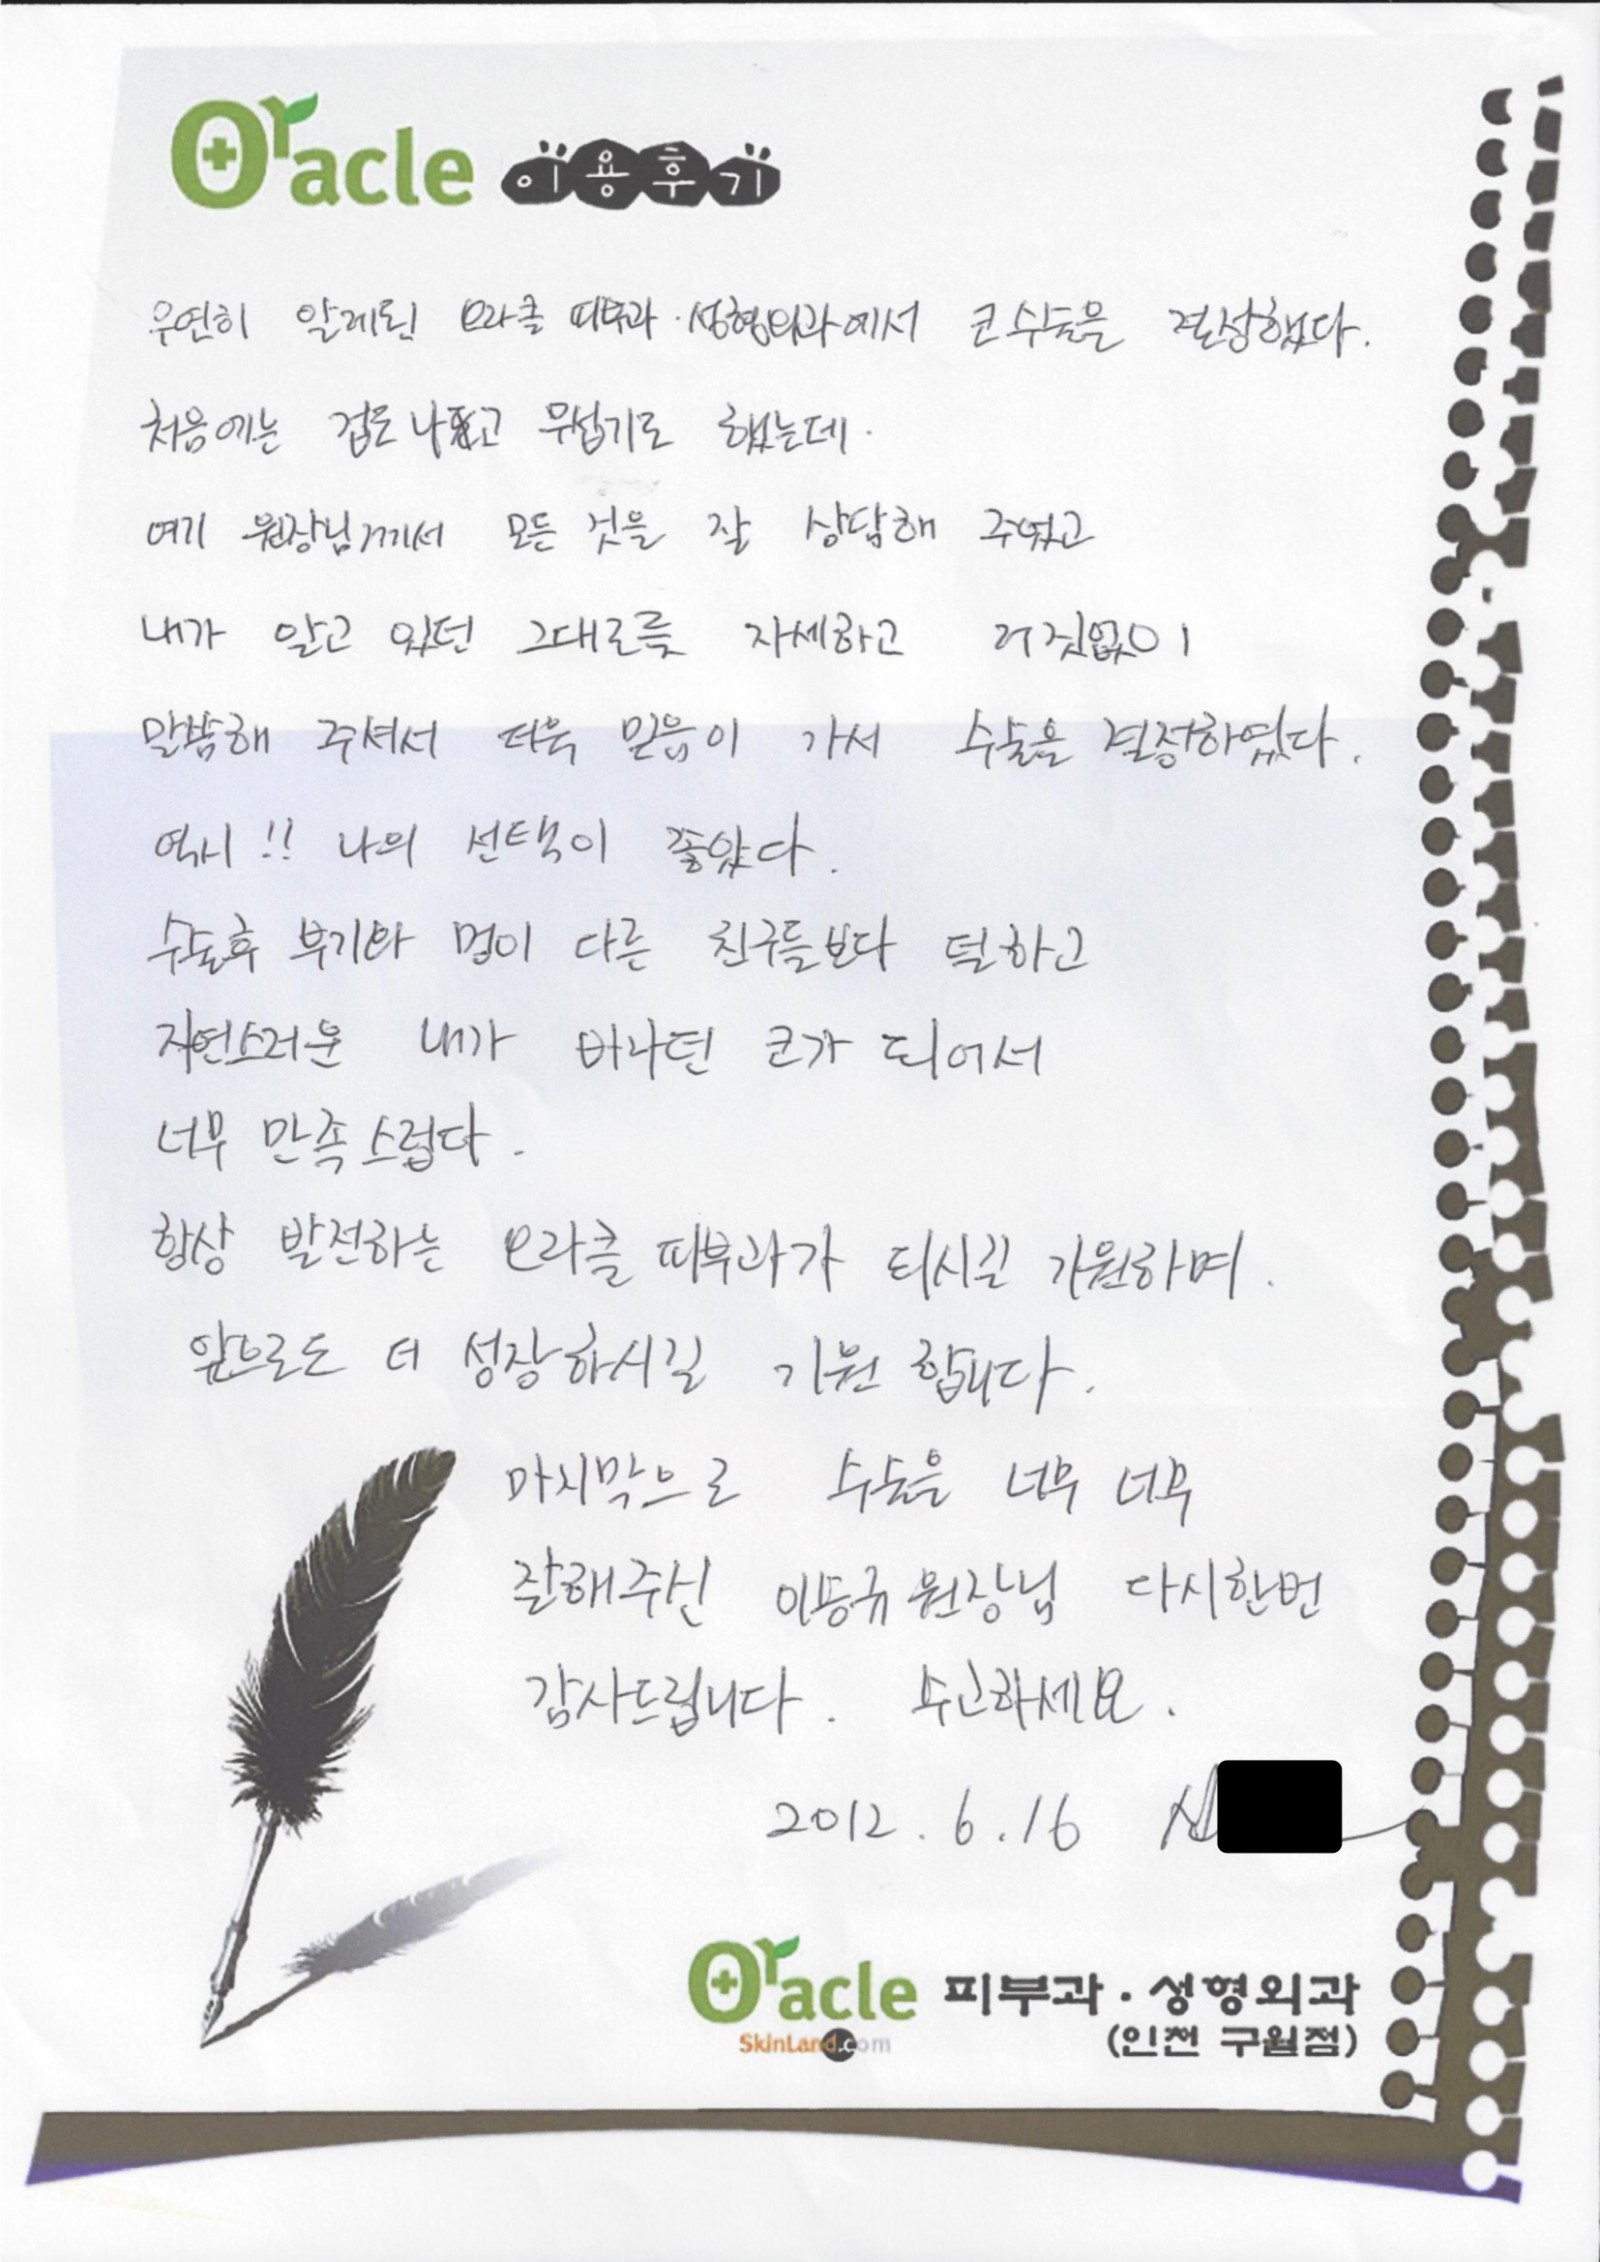 Oracle 이용후기
우연히 알게된 오라클 피부과·성형외과에서 코수술을 결심했다.
처음에는 겁도 나고 무섭기도 했는데.
여기 원장님께서 모든 것을 잘 상담해 주었고
내가 알고 있던 그대로를 자세하고 거짓없이
말씀해 주셔서 더욱 믿음이 가서 수술을 결정하였다.
역시!! 나의 선택이 좋았다.
수술후 부기와 멍이 다른 친구들보다 덜하고
자연스러운 내가 바라던 코가 되어서
너무 만족스럽다.
항상 발전하는 오라클 피부과가 되시길 기원하며.
앞으로도 더 성장하시길 기원 합니다.
마지막으로 수술을 너무 너무
잘해주신 원장님 다시한번
감사드립니다. 수고하세요.
2012.6.16
Oracle 피부과·성형외과
SkinLand.com (인천 구월점)